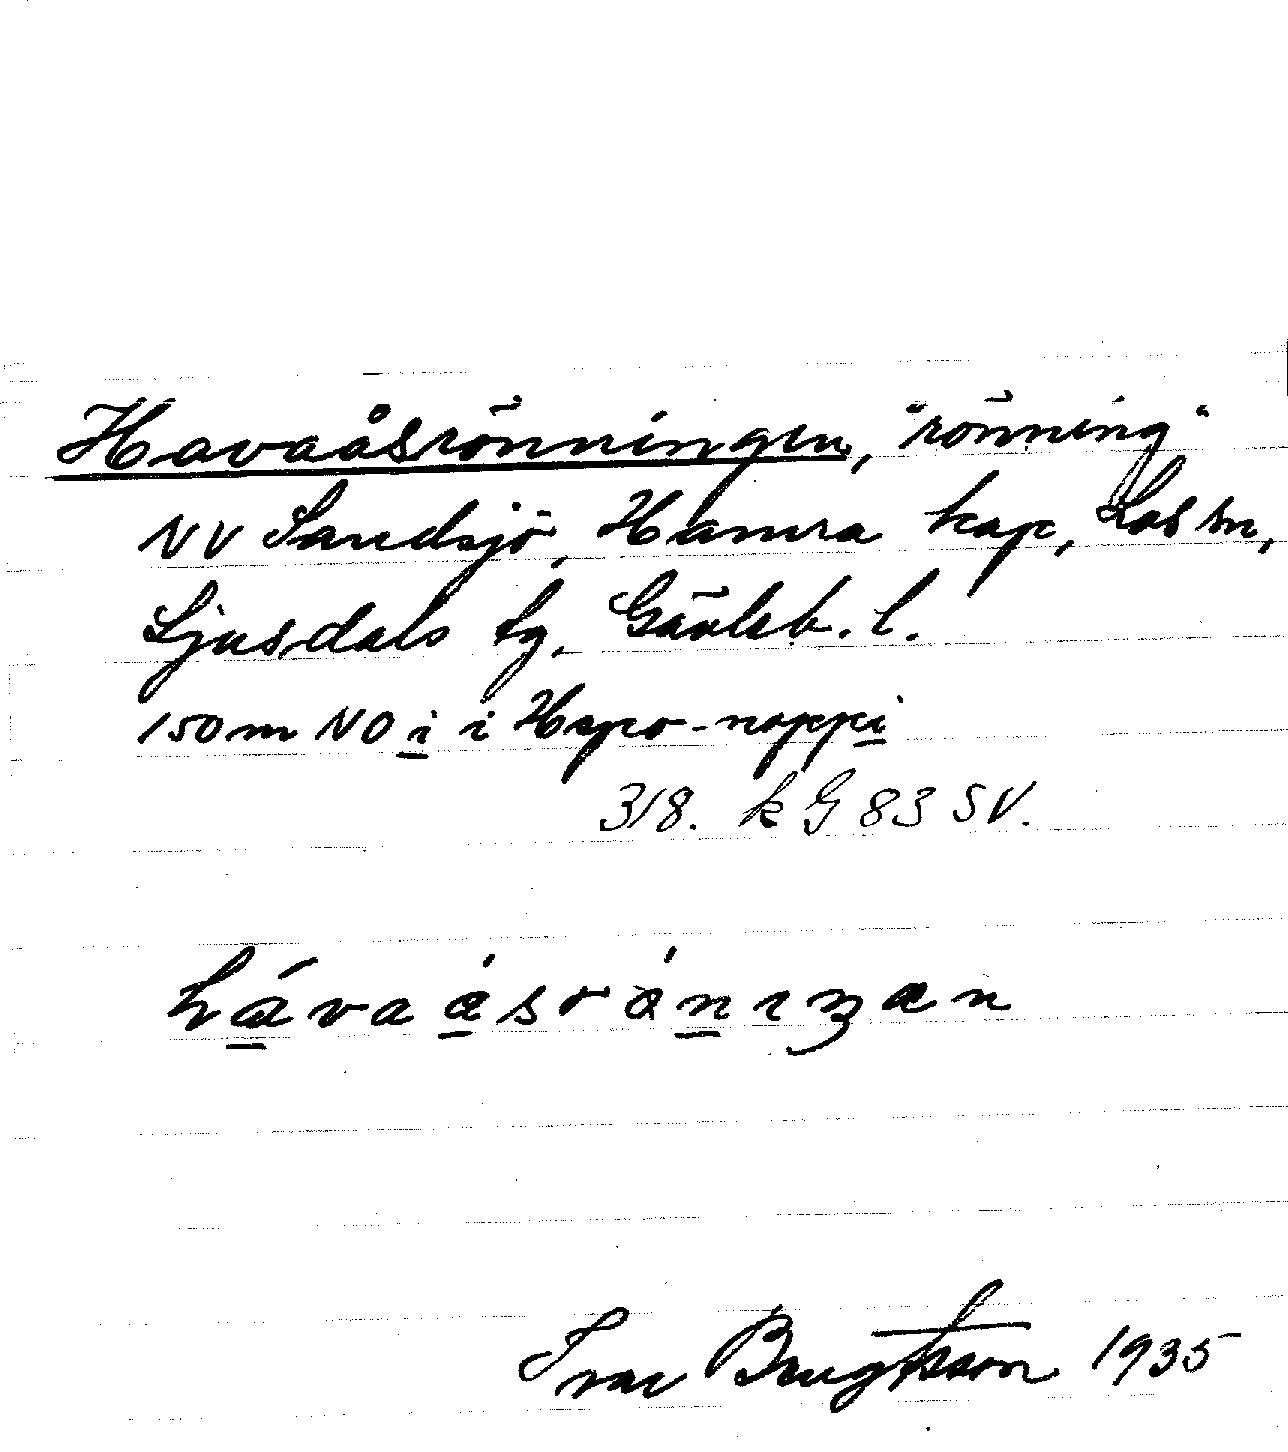 Havaåsrönningen, "rönning"
NV Sandsjö, Hamra kap, Los sn,
Ljusdals tg, Gävleb. l.
150 m NO i i Hspo-noppi
318. k G 83 SV.
Ivar Bengtsson 1935